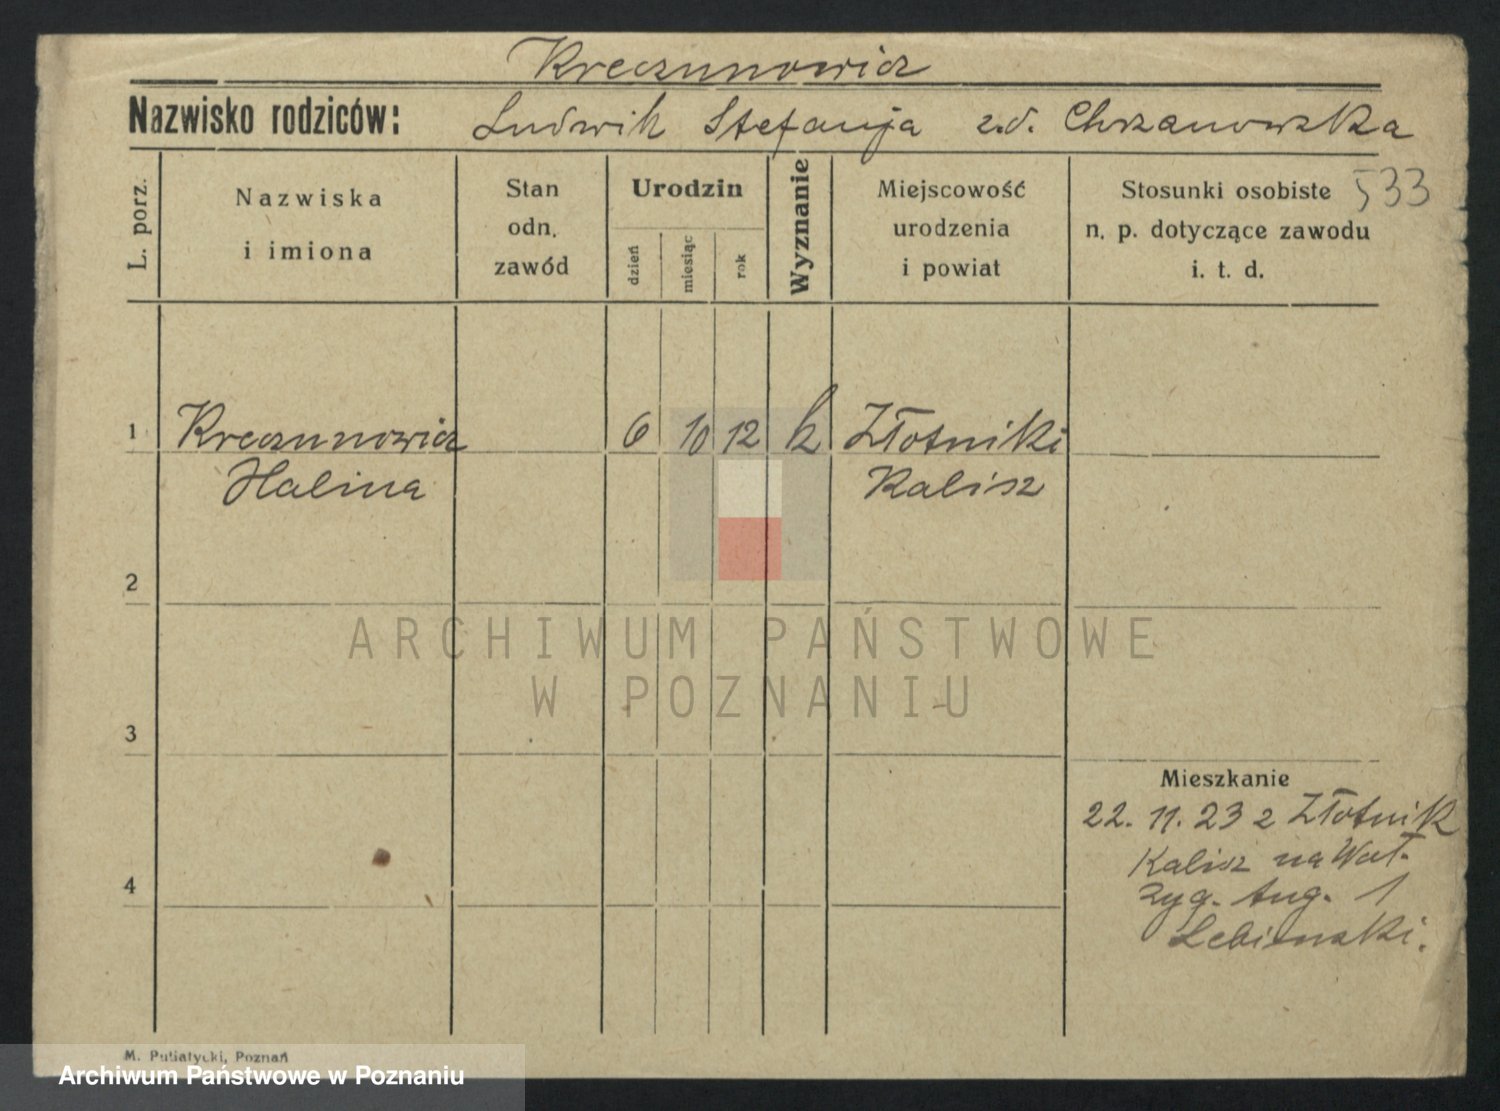 Kreczunowicz
Nazwisko rodziców: Ludwik Stefanja z.d. Chrzanowska
L. porz.
Nazwiska
i imiona
Stan
odn.
zawód
Urodzin
dzień
miesiąc
rok
Wyznanie
Miejscowość
urodzenia
i powiat
Stosunki osobiste
n. p. dotyczące zawodu
i. t. d.
533
1 Kreczunowicz 6 10 12 k Złotniki
Halina Kalisz
2
ARCHIWUM PAŃSTWOWE
W POZNANIU
3
Mieszkanie
22. 11. 23 z Złotnik
Kalisz na Wał.
Zyg. Aug. 1
4
M. Putiatycki, Poznań
Archiwum Państwowe w Poznaniu